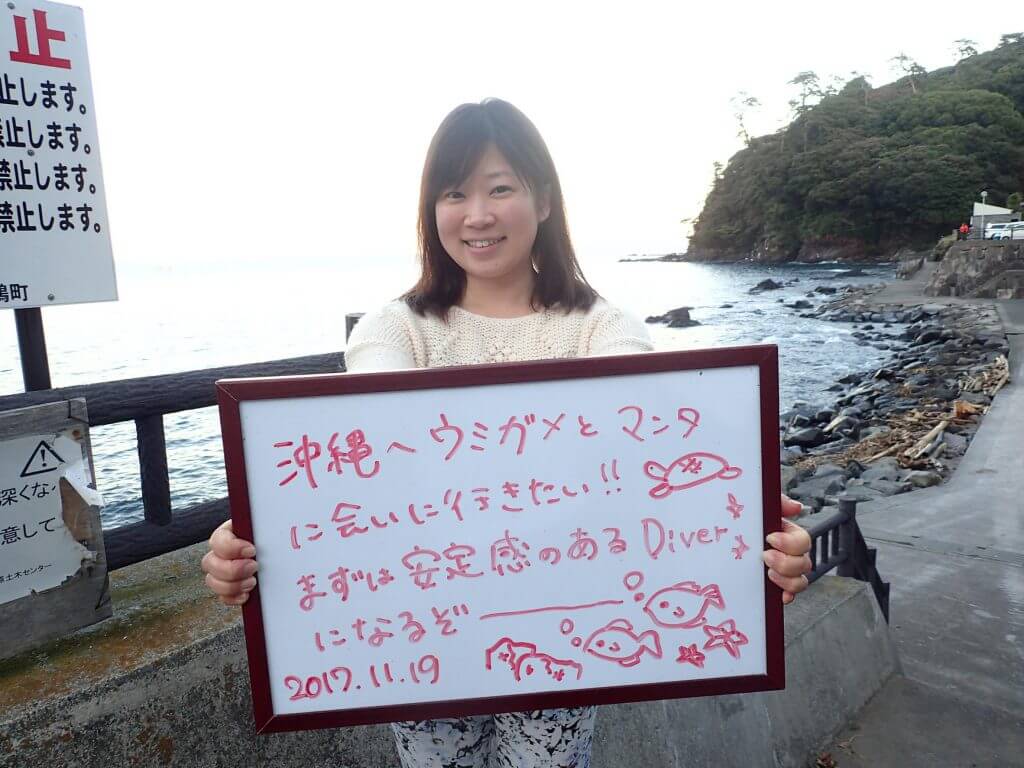 止
止します。
禁止します。
禁止します。
禁止します。
鶴町
深くな
意して
土木センター
沖縄へウミガメとマンタ
に会いに行きたい!!
まずは安定感のあるDiver
になるぞ―――
2017.11.19